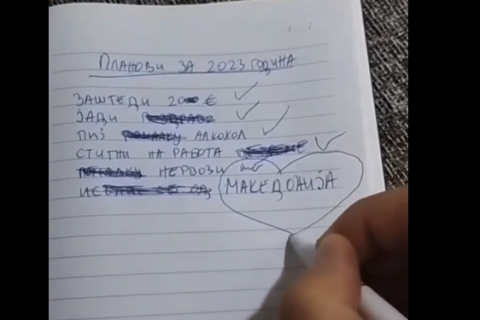 ПЛАНОВИ ЗА 2023 ГОДИНА
ЗАШТЕДИ 20 €
ЈАДИ
ПИЈ АЛКОХОЛ
СТИГНИ НА РАБОТА
НЕРВОЗИ
МАКЕДОНИЈА